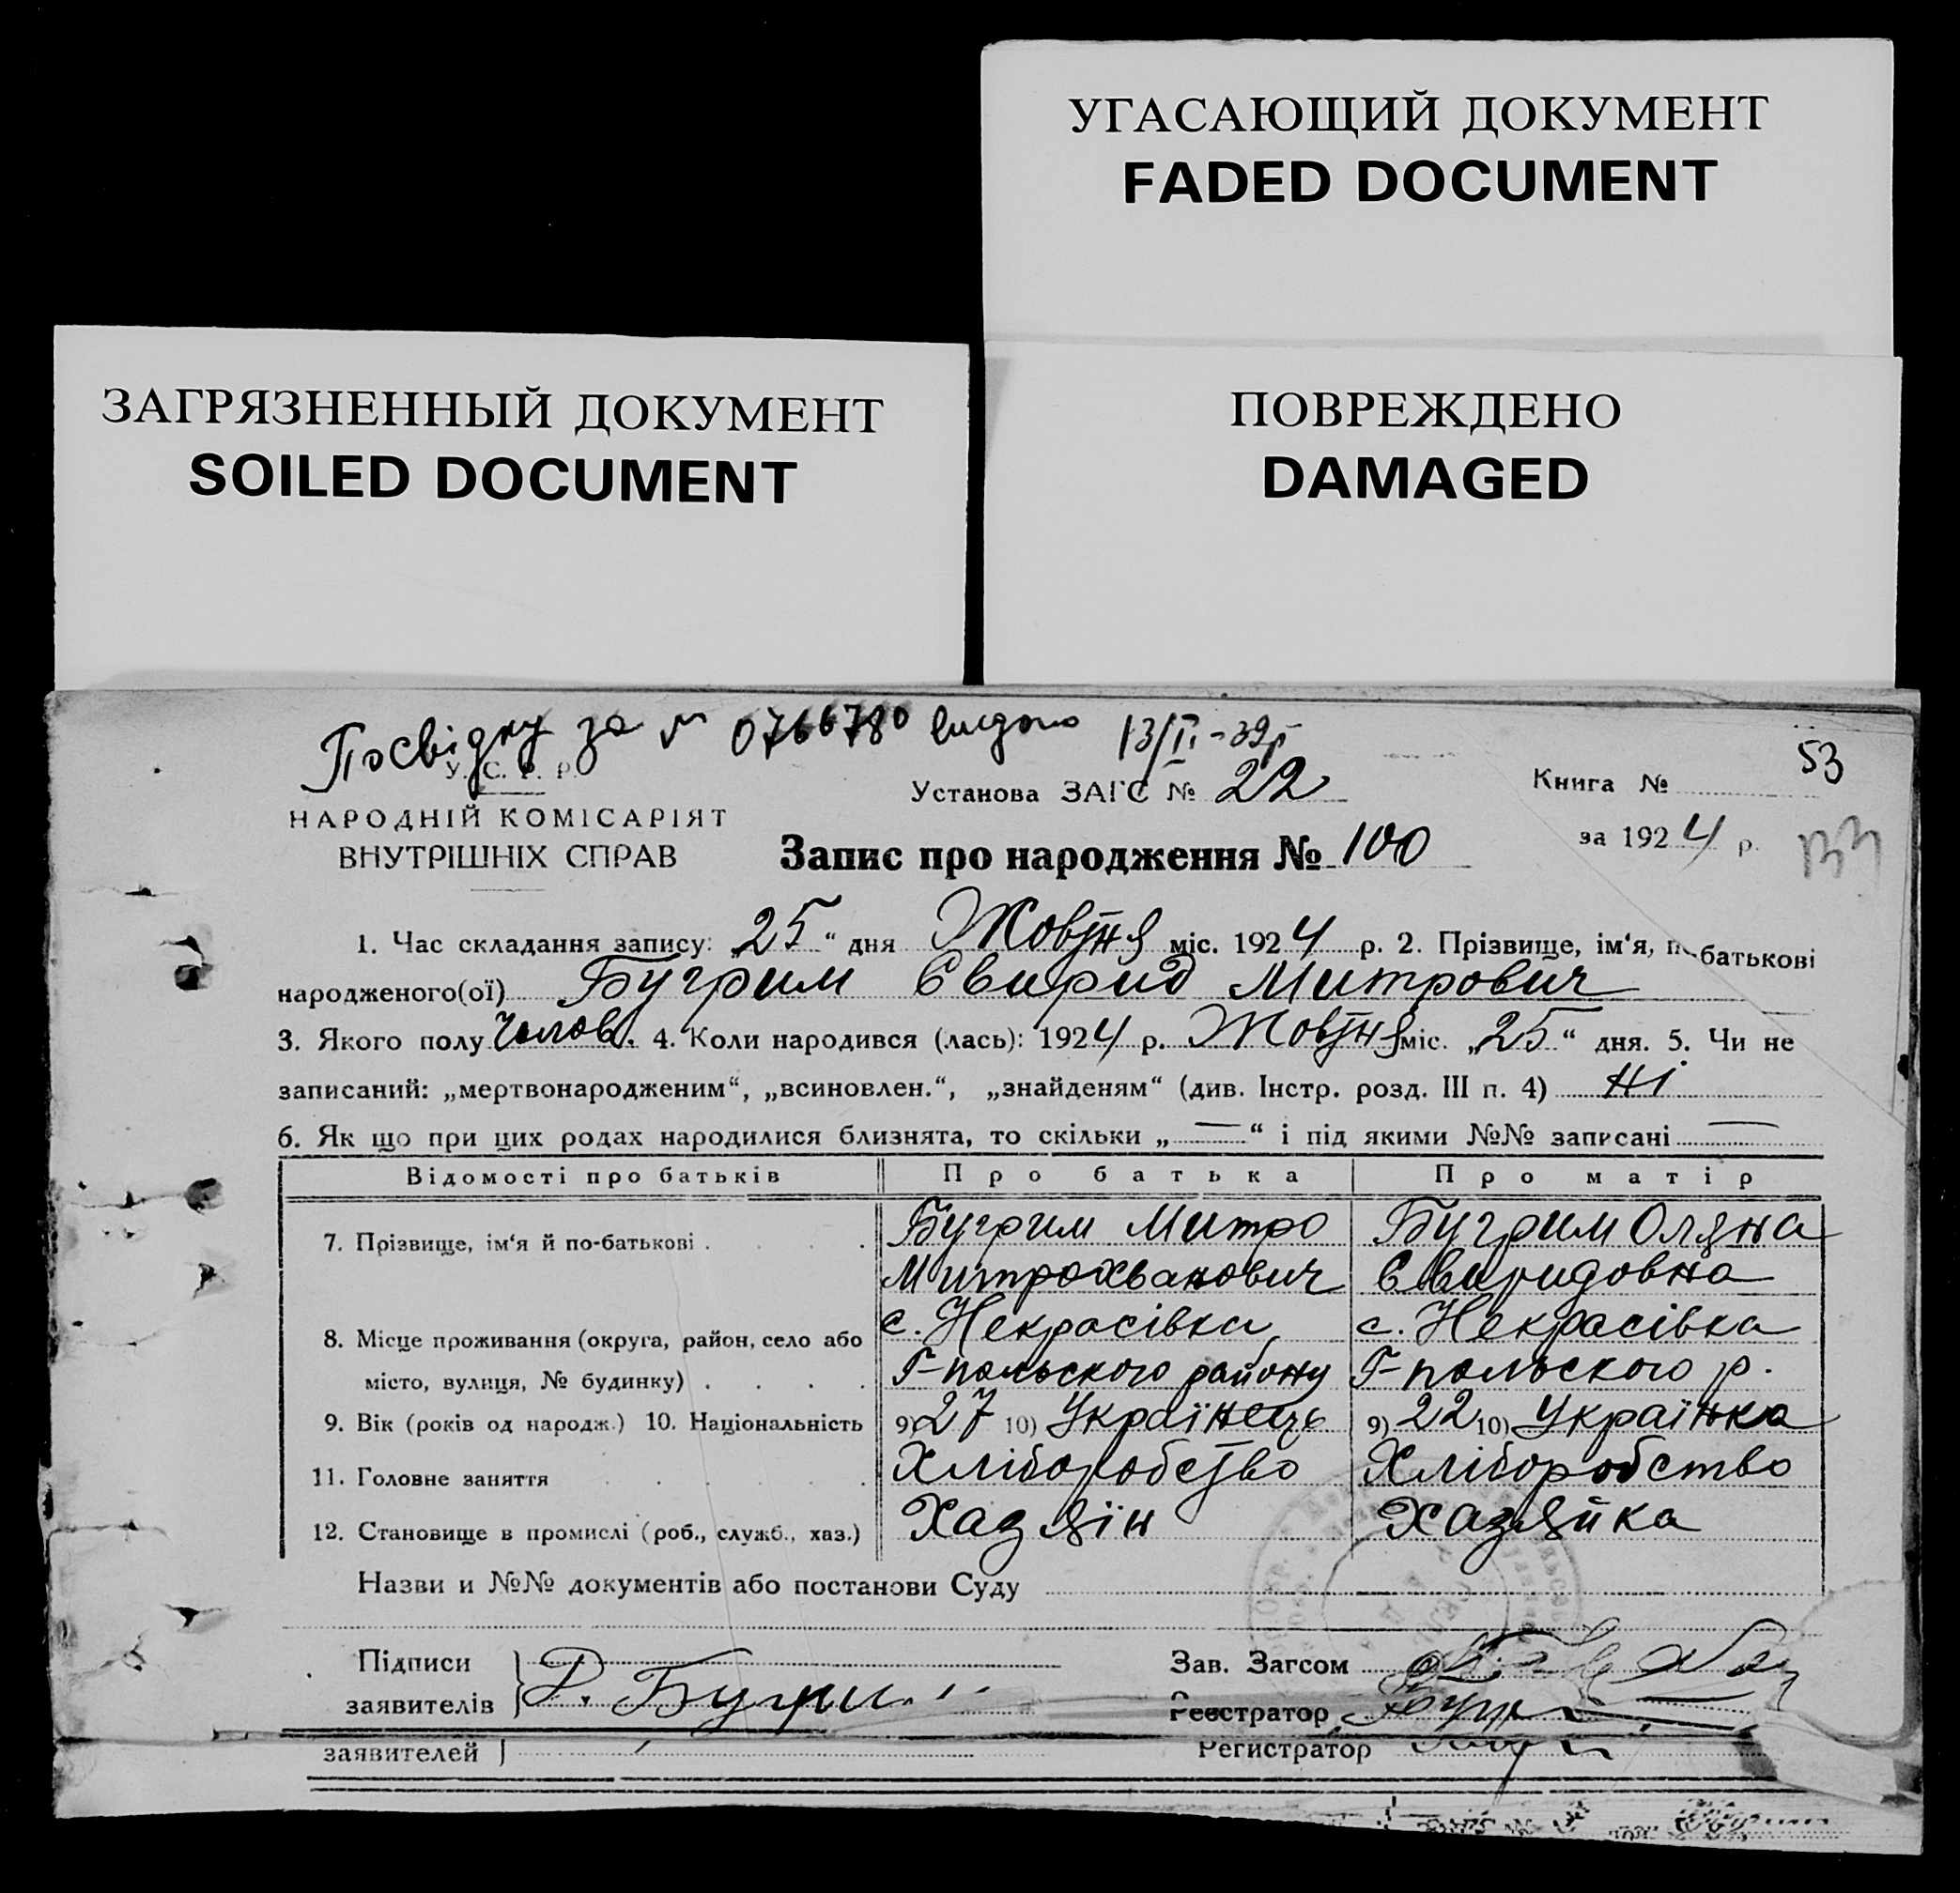 УГАСАЮЩИЙ ДОКУМЕНТ
FADED DOCUMENT
ЗАГРЯЗНЕННЫЙ ДОКУМЕНТ
SOILED DOCUMENT
ПОВРЕЖДЕНО
DAMAGED
Посвідку за № 0766780 видано 13/II-39р
53
У. С. Р. Р.
Установа ЗАГС № 22
Книга №
НАРОДНІЙ КОМІСАРІЯТ
ВНУТРІШНІХ СПРАВ
Запис про народження № 100
за 1924 р.
1. Час складання запису: „25“ дня Жовтня міс. 1924 р. 2. Прізвище, ім‘я, по-батькові
народженого(ої) Бугрим Свирид Митрович
3. Якого полу Чолов. 4. Коли народився (лась): 1924 р. Жовтня міс. „25“ дня. 5. Чи не
записаний: „мертвонародженим“, „всиновлен.“, „знайденям“ (див. Інстр. розд. III п. 4) Ні
6. Як що при цих родах народилися близнята, то скільки „—“ і під якими №№ записані —
Відомості про батьків Про батька Про матір
7. Прізвище, ім‘я й по-батькові . . . . Бугрим Митро Бугрим Оляна
Митрохванович Свиридовна
8. Місце проживання (округа, район, село або с. Некрасівка, с. Некрасівка
місто, вулиця, № будинку) . . . . Г-польского району Г-польского р.
9. Вік (років од народж.) 10. Національність 9) 27 10) Українець 9) 22 10) Українка
11. Головне заняття Хліборобство Хліборобство
12. Становище в промислі (роб., служб., хаз.) Хазяїн Хазяйка
Назви и №№ документів або постанови Суду
Підписи
заявителів } Д. Бугрим
Зав. Загсом
Реєстратор
заявителей }
Регистратор